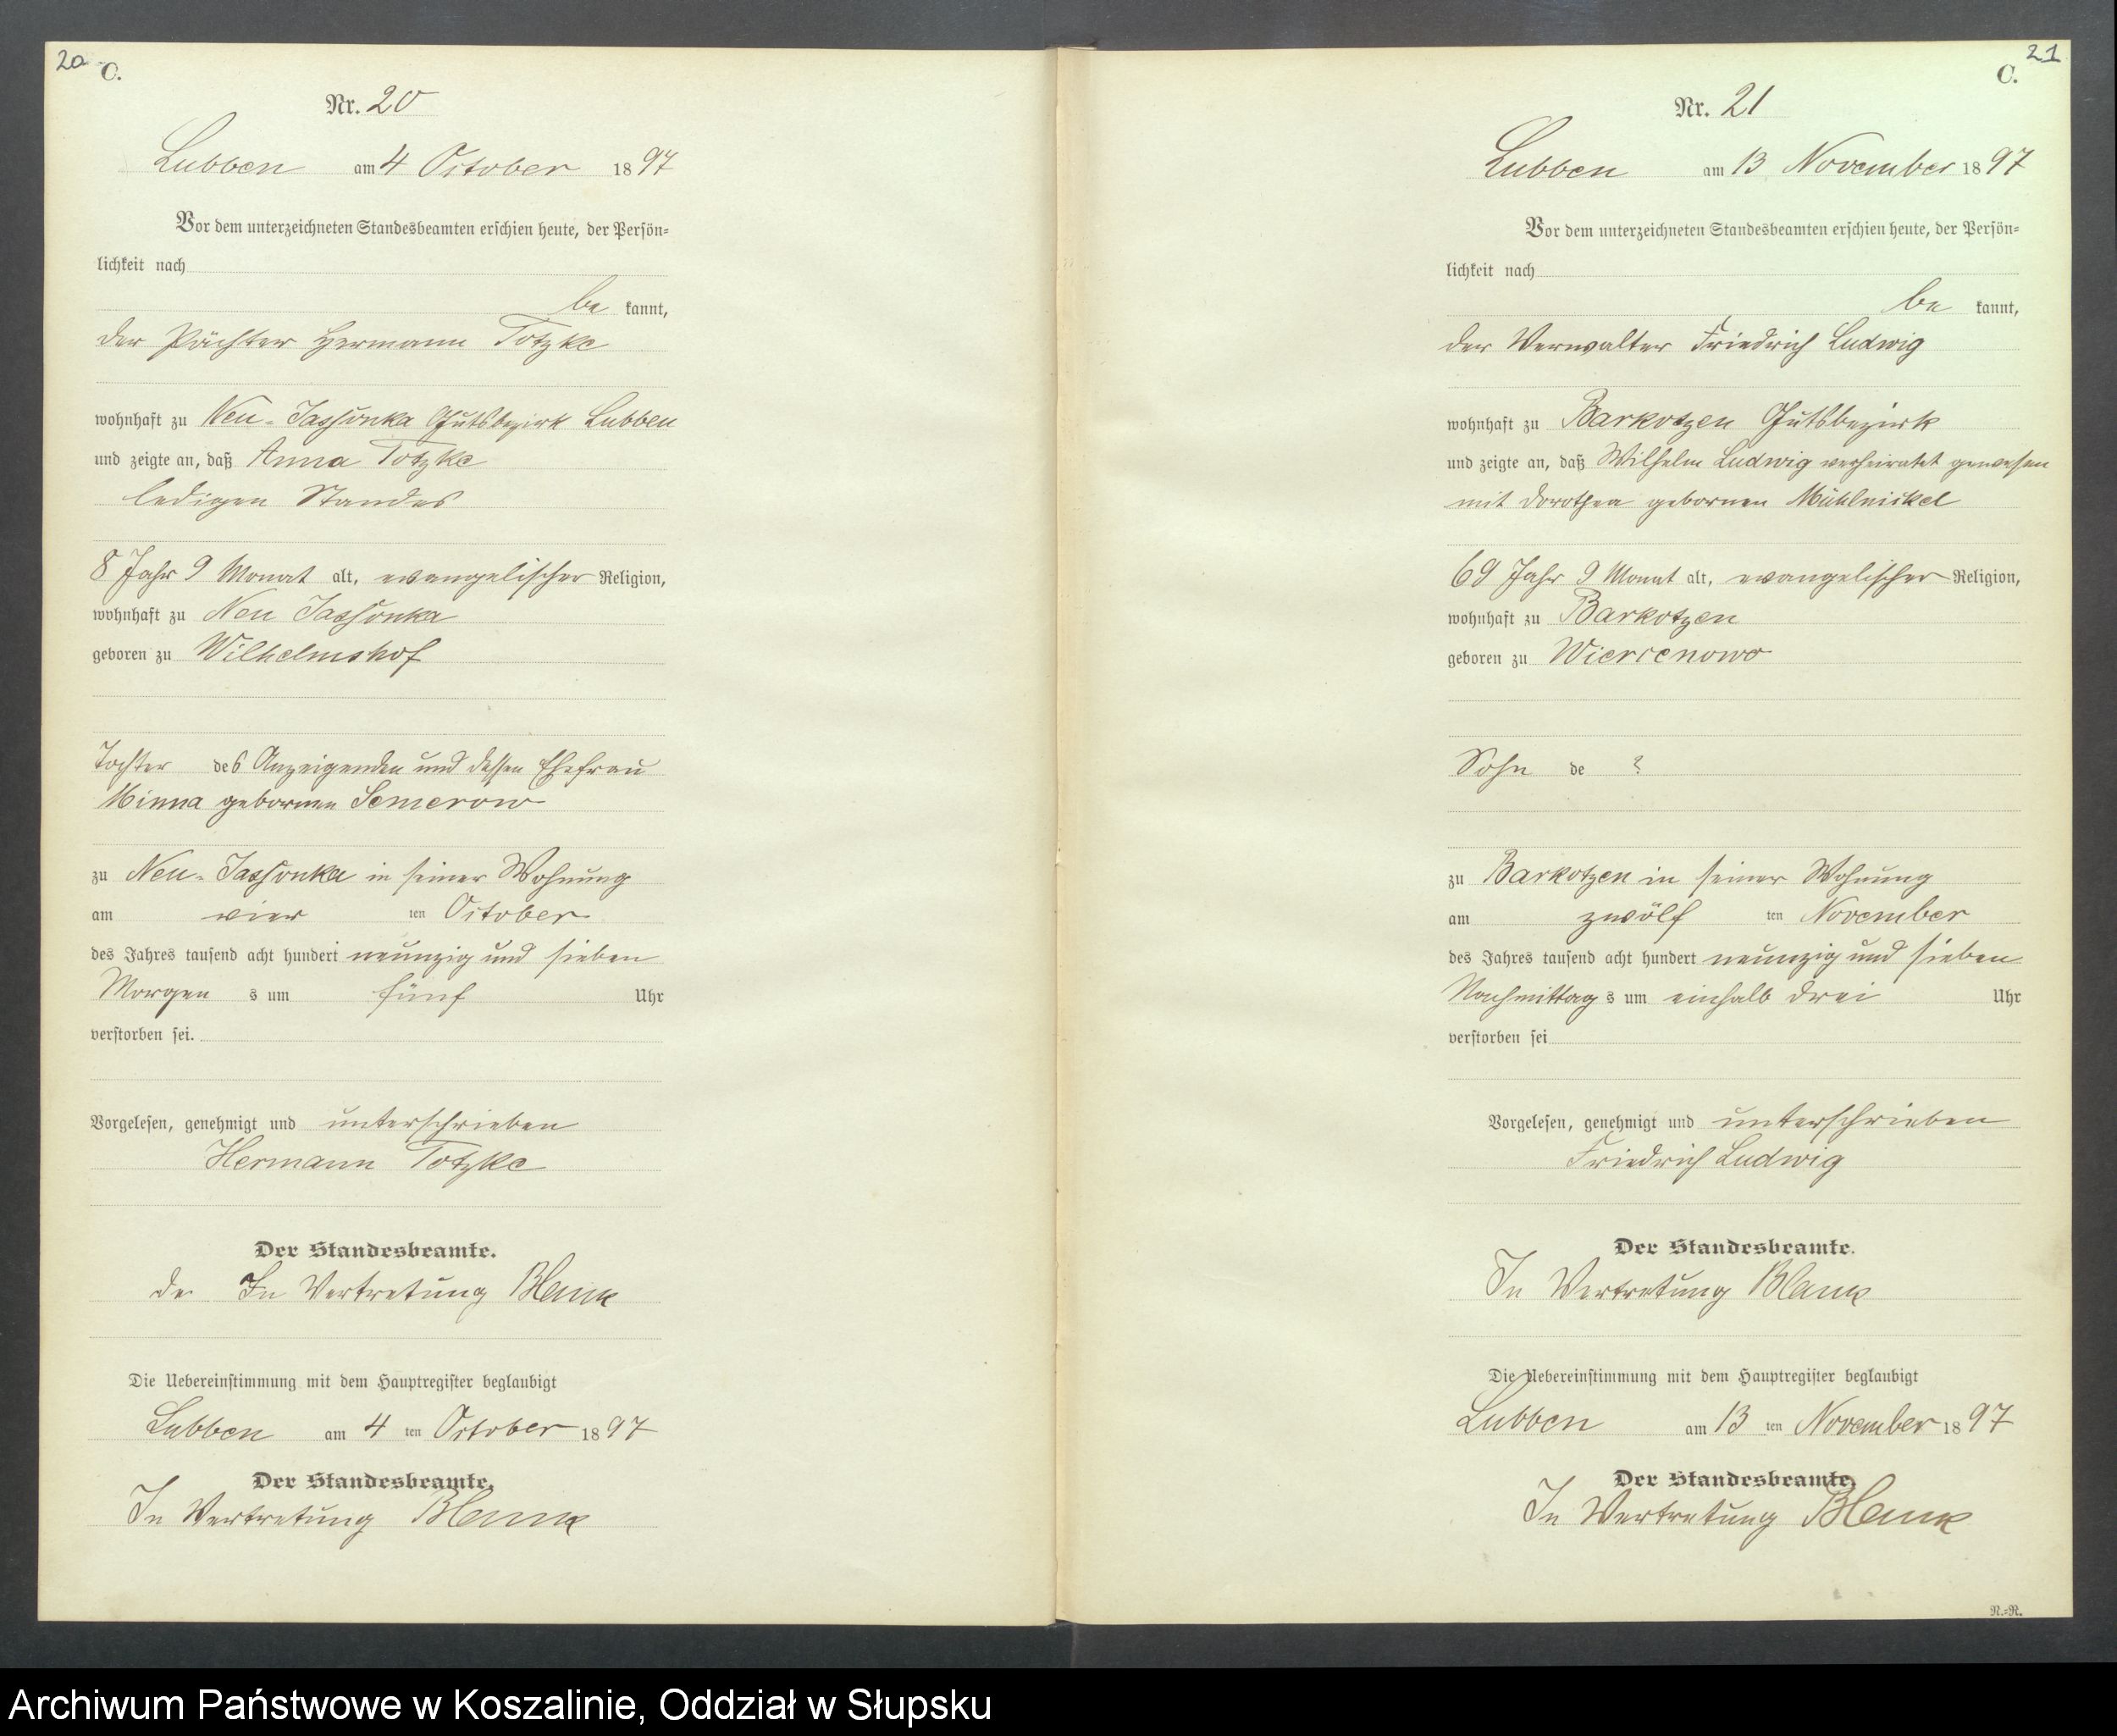 20
C.
Nr. 20
Lubben am 4 October 1897
Vor dem unterzeichneten Standesbeamten erschien heute, der Persön=
lichkeit nach
be kannt,
der Pächter Hermann Totzke
wohnhaft zu Neu-Jassonka Gutsbezirk Lubben
und zeigte an, daß Anna Totzke
ledigen Standes
8 Jahr 9 Monat alt, evangelischer Religion,
wohnhaft zu Neu Jassonka
geboren zu Wilhelmshof
Tochter des Anzeigenden und dessen Ehefrau
Minna gebornen Semerow
zu Neu-Jassonka in seiner Wohnung
am vier ten October
des Jahres tausend acht hundert neunzig und sieben
Morgen s um fünf Uhr
verstorben sei.
Vorgelesen, genehmigt und unterschrieben
Hermann Totzke
Der Standesbeamte.
de In Vertretung Blank
Die Uebereinstimmung mit dem Hauptregister beglaubigt
Lubben am 4 ten October 1897
Der Standesbeamte.
In Vertretung Blank
21
C.
Nr. 21
Lubben am 13 November 1897
Vor dem unterzeichneten Standesbeamten erschien heute, der Persön=
lichkeit nach
be kannt,
der Verwalter Friedrich Ludwig
wohnhaft zu Barkotzen Gutsbezirk
und zeigte an, daß Wilhelm Ludwig verheiratet gewesen
mit Dorothea gebornen Mühlnickel
69 Jahr 9 Monat alt, evangelischer Religion,
wohnhaft zu Barkotzen
geboren zu
Sohn de ?
zu Barkotzen in seiner Wohnung
am zwölf ten November
des Jahres tausend acht hundert neunzig und sieben
Nachmittag s um einhalb drei Uhr
verstorben sei
Vorgelesen, genehmigt und unterschrieben
Friedrich Ludwig
Der Standesbeamte.
In Vertretung Blank
Die Uebereinstimmung mit dem Hauptregister beglaubigt
Lubben am 13 ten November 1897
Der Standesbeamte
In Vertretung Blank
N.=N.
Archiwum Państwowe w Koszalinie, Oddział w Słupsku